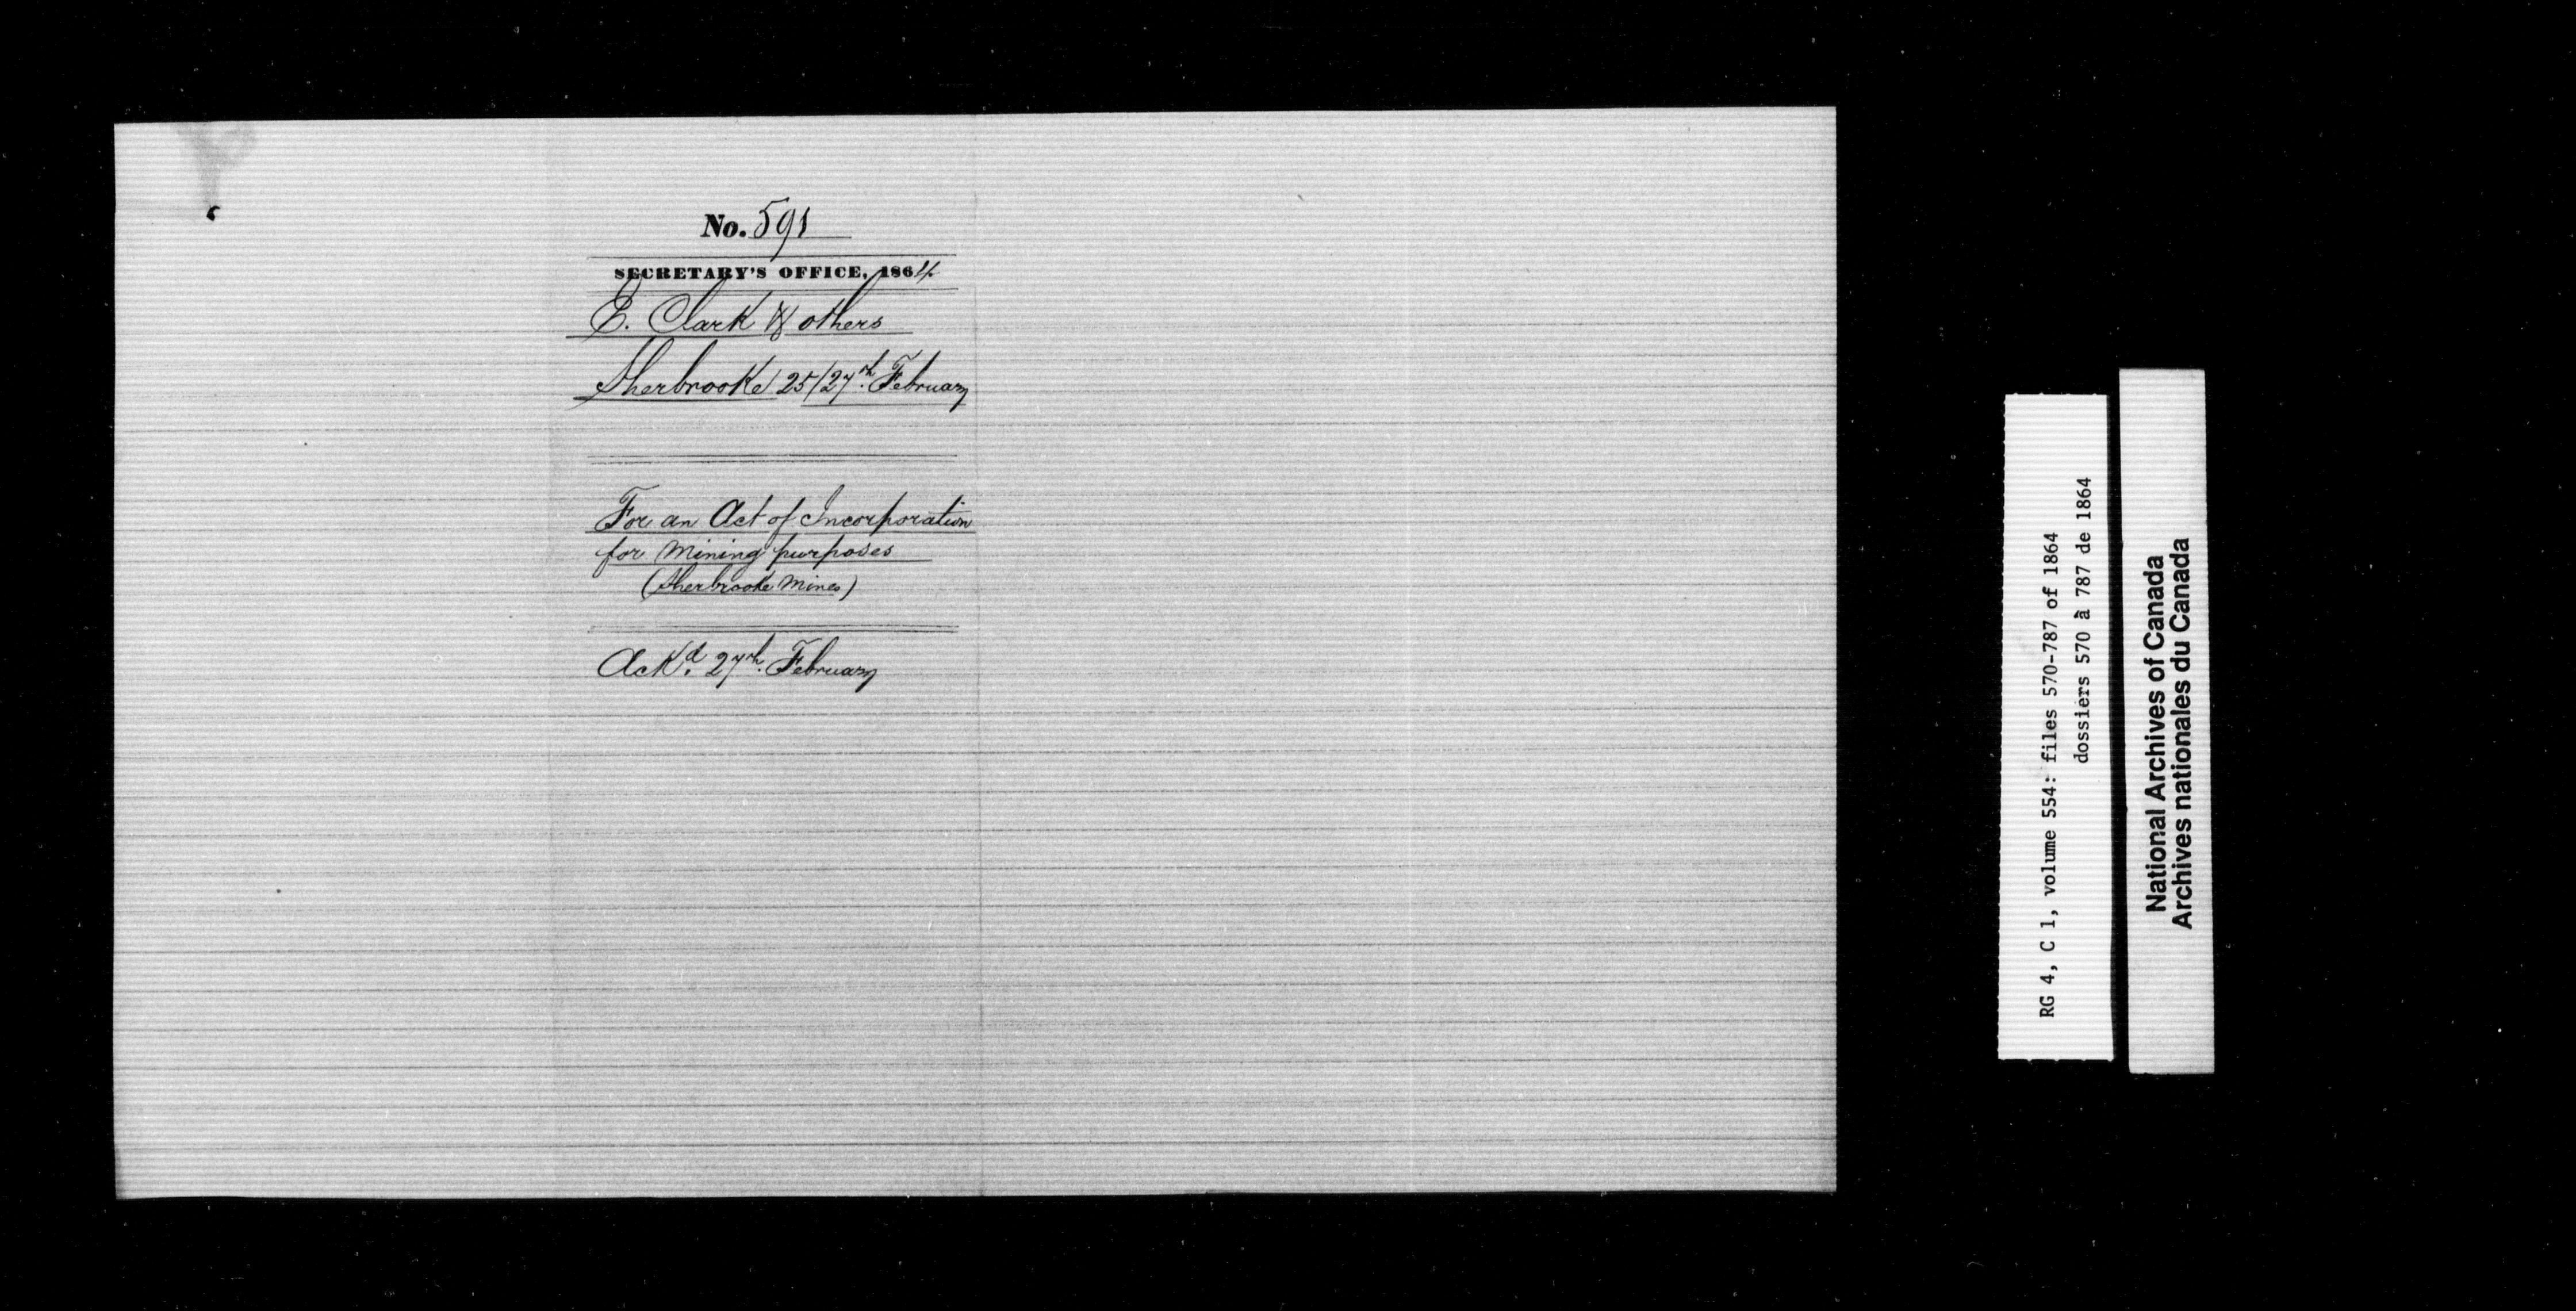 No. 591
SECRETARY'S OFFICE, 1864
E. Clark & others
Sherbrooke 25/27th February
For an Act of Incorporation
for Mining purposes
(Sherbrooke Mines)
Ackd. 27th. February
RG 4, C 1, volume 554: files 570-787 of 1864
dossiers 570 à 787 de 1864
National Archives of Canada
Archives nationales du Canada